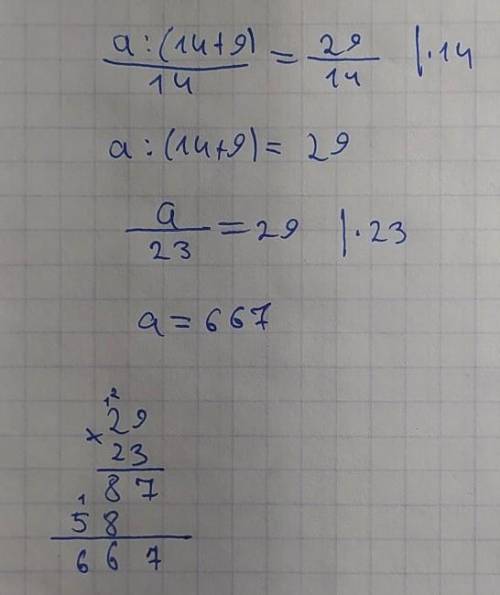 a:(14+9) = 29 |·14
14 14
a:(14+9)= 29
a = 29 |·23
23
a = 667
12
29
× 23
87
1
58
667